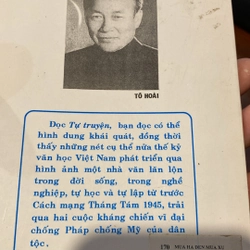 TÔ HOÀI
Đọc Tự truyện, bạn đọc có thể
hình dung khái quát, đồng thời
thấy những nét cụ thể nửa thế kỷ
văn học Việt Nam phát triển qua
hình ảnh một nhà văn lăn lộn
trong đời sống, trong nghề
nghiệp, tự học và tự lập từ trước
Cách mạng Tháng Tám 1945, trải
qua hai cuộc kháng chiến vĩ đại
chống Pháp chống Mỹ của dân
tộc.
170